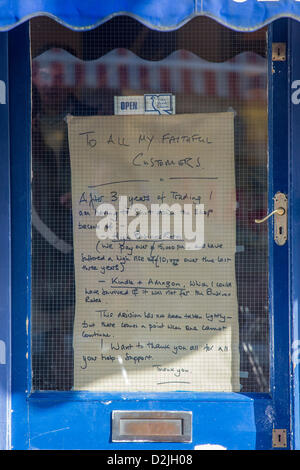 OPEN
To All My Faithful
Customers
After 3 years of Trading I
am
shop
because of -
(We pay over £15,000 and have
suffered a high rise of £10, over the last
three years)
- Kindle + Amazon, which I could
have survived if it was not for the Business
Rates.
This decision has not been taken lightly -
but there comes a point when one cannot
continue.
I want to thank you all for all
your help + support.
Thank you
alamy
Image ID: D2JH08
www.alamy.com